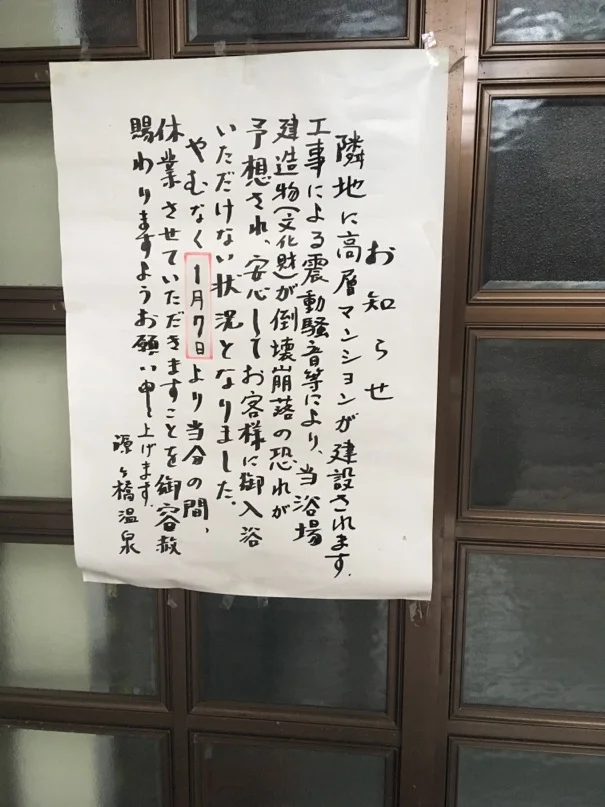 お知らせ
隣地に高層マンションが建設されます。
工事による震動騒音等により、当浴場
建造物(文化財)が倒壊崩落の恐れが
予想され、安心してお客様に御入浴
いただけない状況となりました。
やむなく1月7日より当分の間、
休業させていただきますことを御容赦
賜わりますようお願い申し上げます。
源ヶ橋温泉